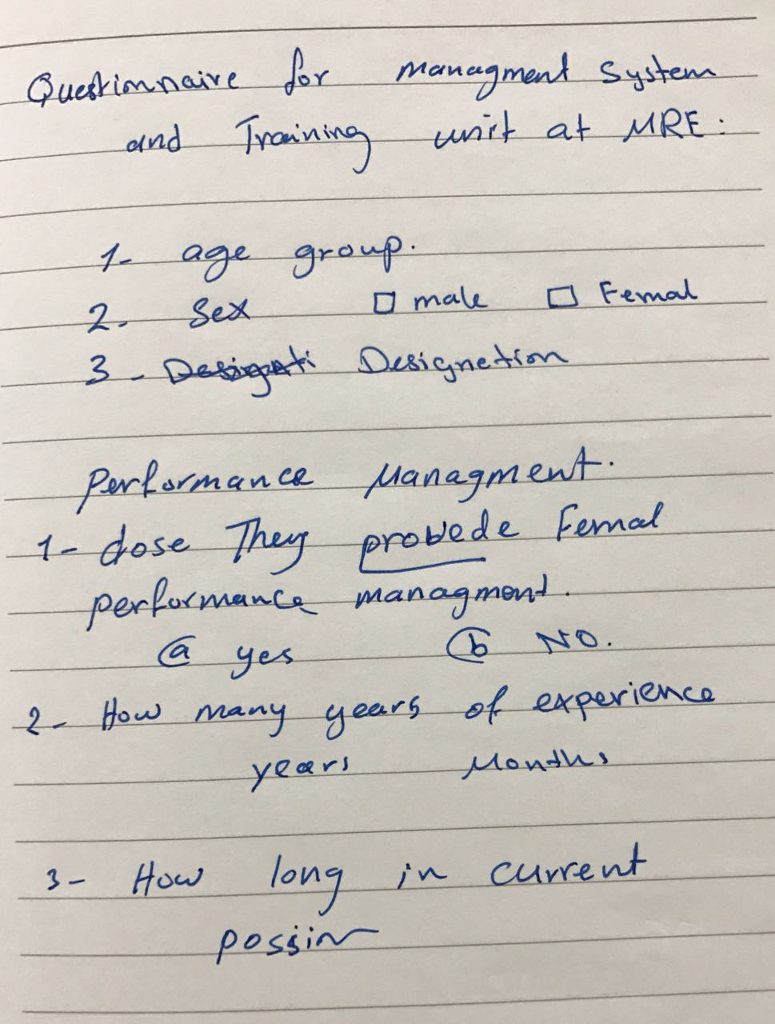 Questionnaire for managment system
and Training unit at MRE:
1- age group.
2. Sex □ male □ Femal
3 - Desigati Designetion
Performance Managment.
1- dose They probede Femal
performance managment.
ⓐ yes ⓑ NO.
2- How many years of experience
years Months
3- How long in current
possin